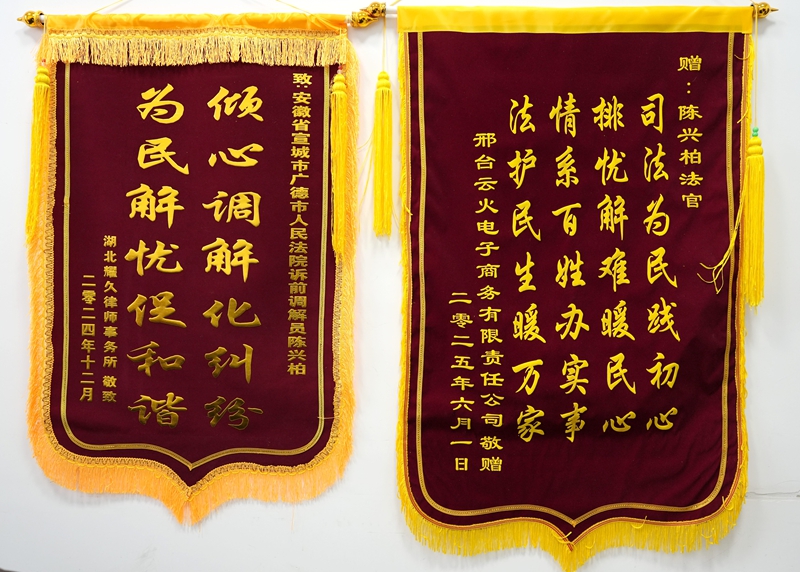 致：安徽省宣城市广德市人民法院诉前调解员陈兴柏
倾心调解化纠纷
为民解忧促和谐
湖北耀久律师事务所 敬致
二零二四年十二月
赠：陈兴柏法官
司法为民践初心
排忧解难暖民心
情系百姓办实事
法护民生暖万家
邢台云火电子商务有限责任公司敬赠
二零二五年六月一日